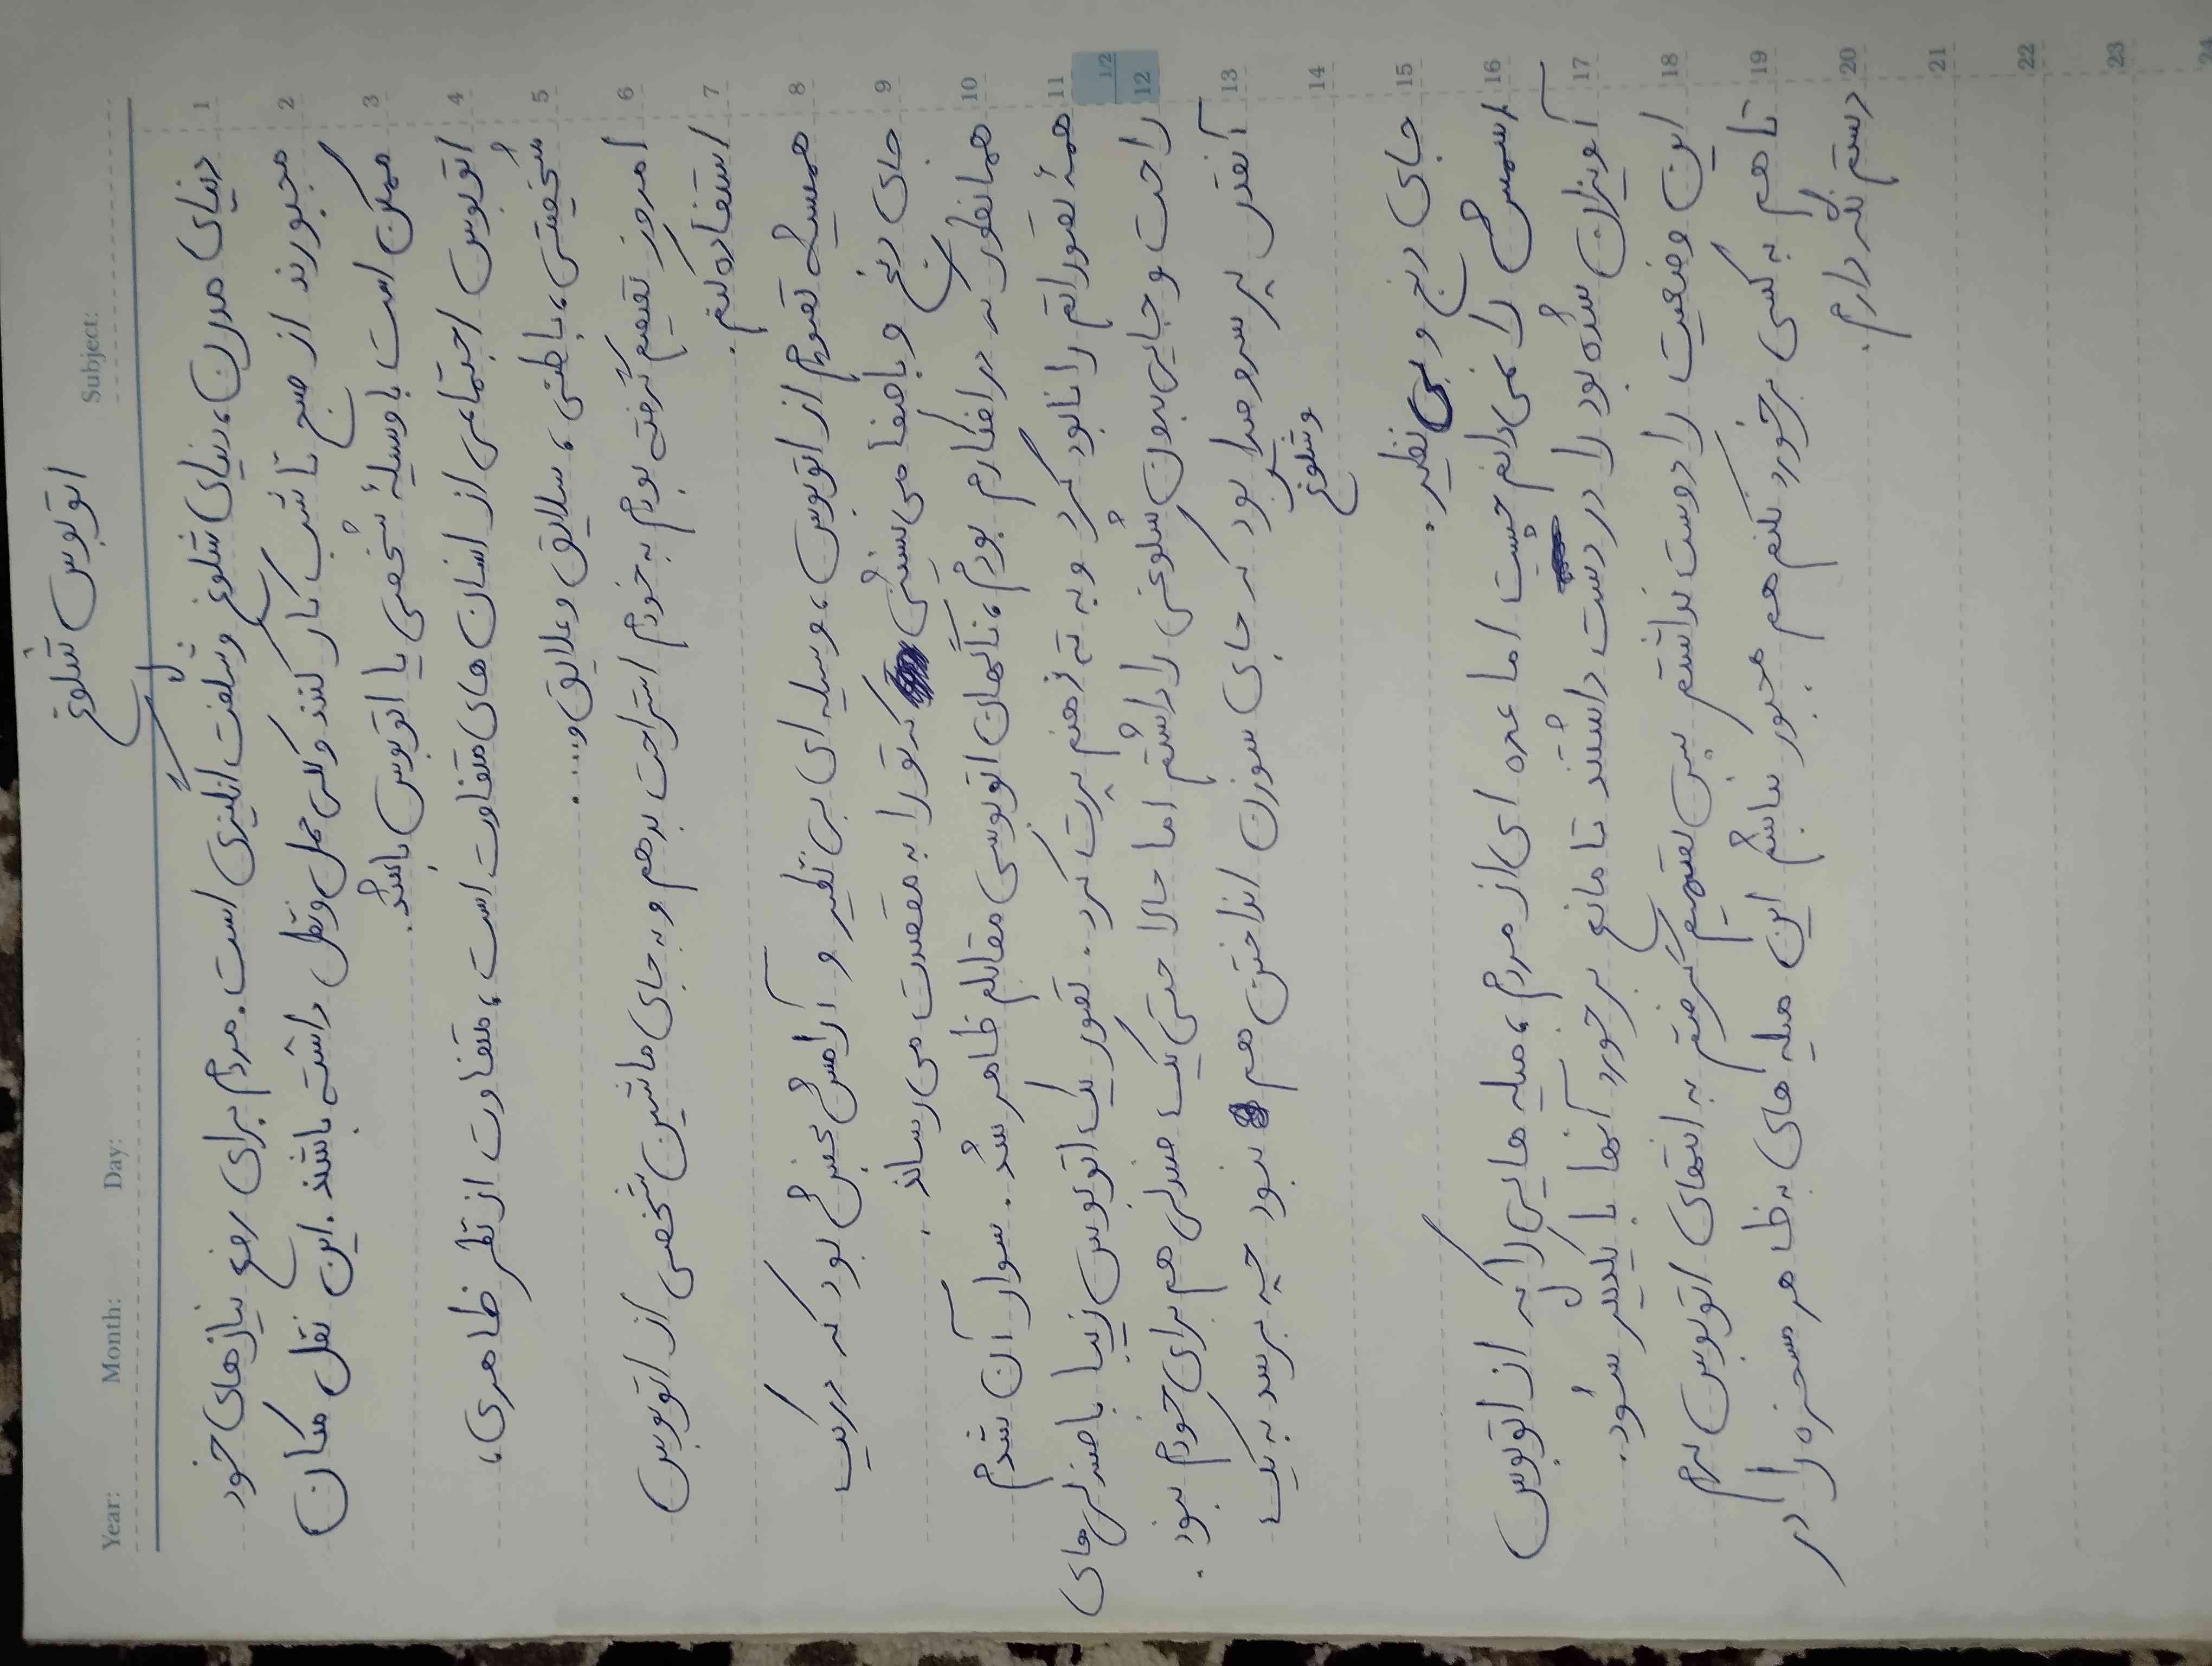 اتوبوس شلوغ
Year: Month: Day: Subject:
دنیای مدرن، دنیای شلوغ و شگفت انگیزی است. مردم برای رفع نیازهای خود
مجبورند از صبح تا شب کار کنند و کلی حمل و نقل داشته باشند. این نقل مکان
ممکن است با وسیلهٔ شخصی یا اتوبوس باشد.
اتوبوس اجتماعی از انسان های متفاوت است، متفاوت از نظر ظاهری،
شخصیتی، باطنی، سلایق و علایق و....
امروز تصمیم گرفته بودم به خودم استراحت بدهم و به جای ماشین شخصی از اتوبوس
استفاده کنم.
همیشه تصورم از اتوبوس، وسیله ای بی نظیر و آرامش بخش بود که در یک
جای دنج و باصفا می نشینی که تو را به مقصدت می رساند.
همانطور که در افکارم بودم، ناگهان اتوبوسی مقابلم ظاهر شد. سوار آن شدم
همهٔ تصوراتم را نابود کرد و به ته ذهنم پرت کرد. تصور یک اتوبوس زیبا با صندلی های
راحت و جایی بدون شلوغی را داشتم اما حالا حتی یک صندلی هم برای خودم نبود.
آنقدر پر سر و صدا بود که جای سوزن انداختن هم نبود چه برسد به یک
و شلوغ
جای دنج و بی نظیر.
اسمش را نمی دانم چیست اما عده ای از مردم، میله هایی را که از اتوبوس
آویزان شده بود را در دست داشتند تا مانع برخورد آنها با یکدیگر شود.
این وضعیت را دوست نداشتم پس تصمیم گرفتم به انتهای اتوبوس بروم
تا هم به کسی برخورد نکنم هم مجبور نباشم این میله های به ظاهر مسخره را در
دستم نگه دارم.
1
2
3
4
5
6
7
8
9
10
11
1/2
12
13
14
15
16
17
18
19
20
21
22
23
24